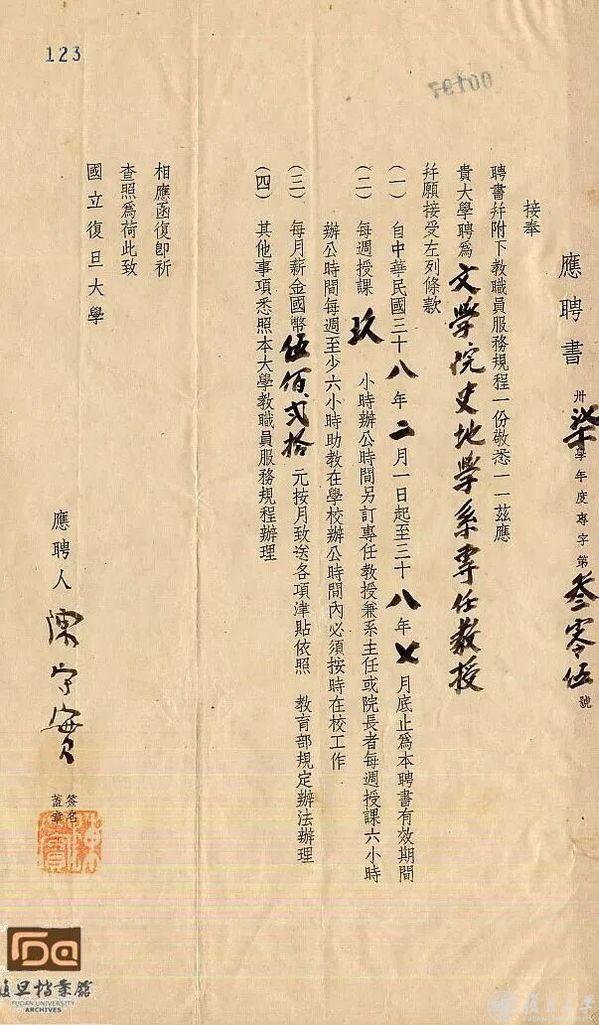 123
00197
應聘書 卅柒學年度專字第叁零伍號
接奉
聘書幷附下教職員服務規程一份敬悉一一茲應
貴大學聘爲文學院史地學系專任教授
幷願接受左列條款
(一) 自中華民國三十八年二月一日起至三十八年七月底止爲本聘書有效期間
(二) 每週授課玖小時辦公時間另訂專任教授兼系主任或院長者每週授課六小時
辦公時間每週至少六小時助教在學校辦公時間內必須按時在校工作
(三) 每月薪金國幣伍佰貳拾元按月致送各項津貼依照 教育部規定辦法辦理
(四) 其他事項悉照本大學教職員服務規程辦理
相應函復卽祈
查照爲荷此致
國立復旦大學
應聘人 陳守實 簽名蓋章
復旦檔案館
FUDAN UNIVERSITY
ARCHIVES
復旦大學